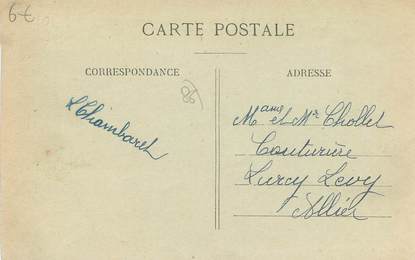 6€
CARTE POSTALE
CORRESPONDANCE
ADRESSE
86
LChambaret
Mame et Mr Chollet
Couturière
Lurcy Levy
Allier